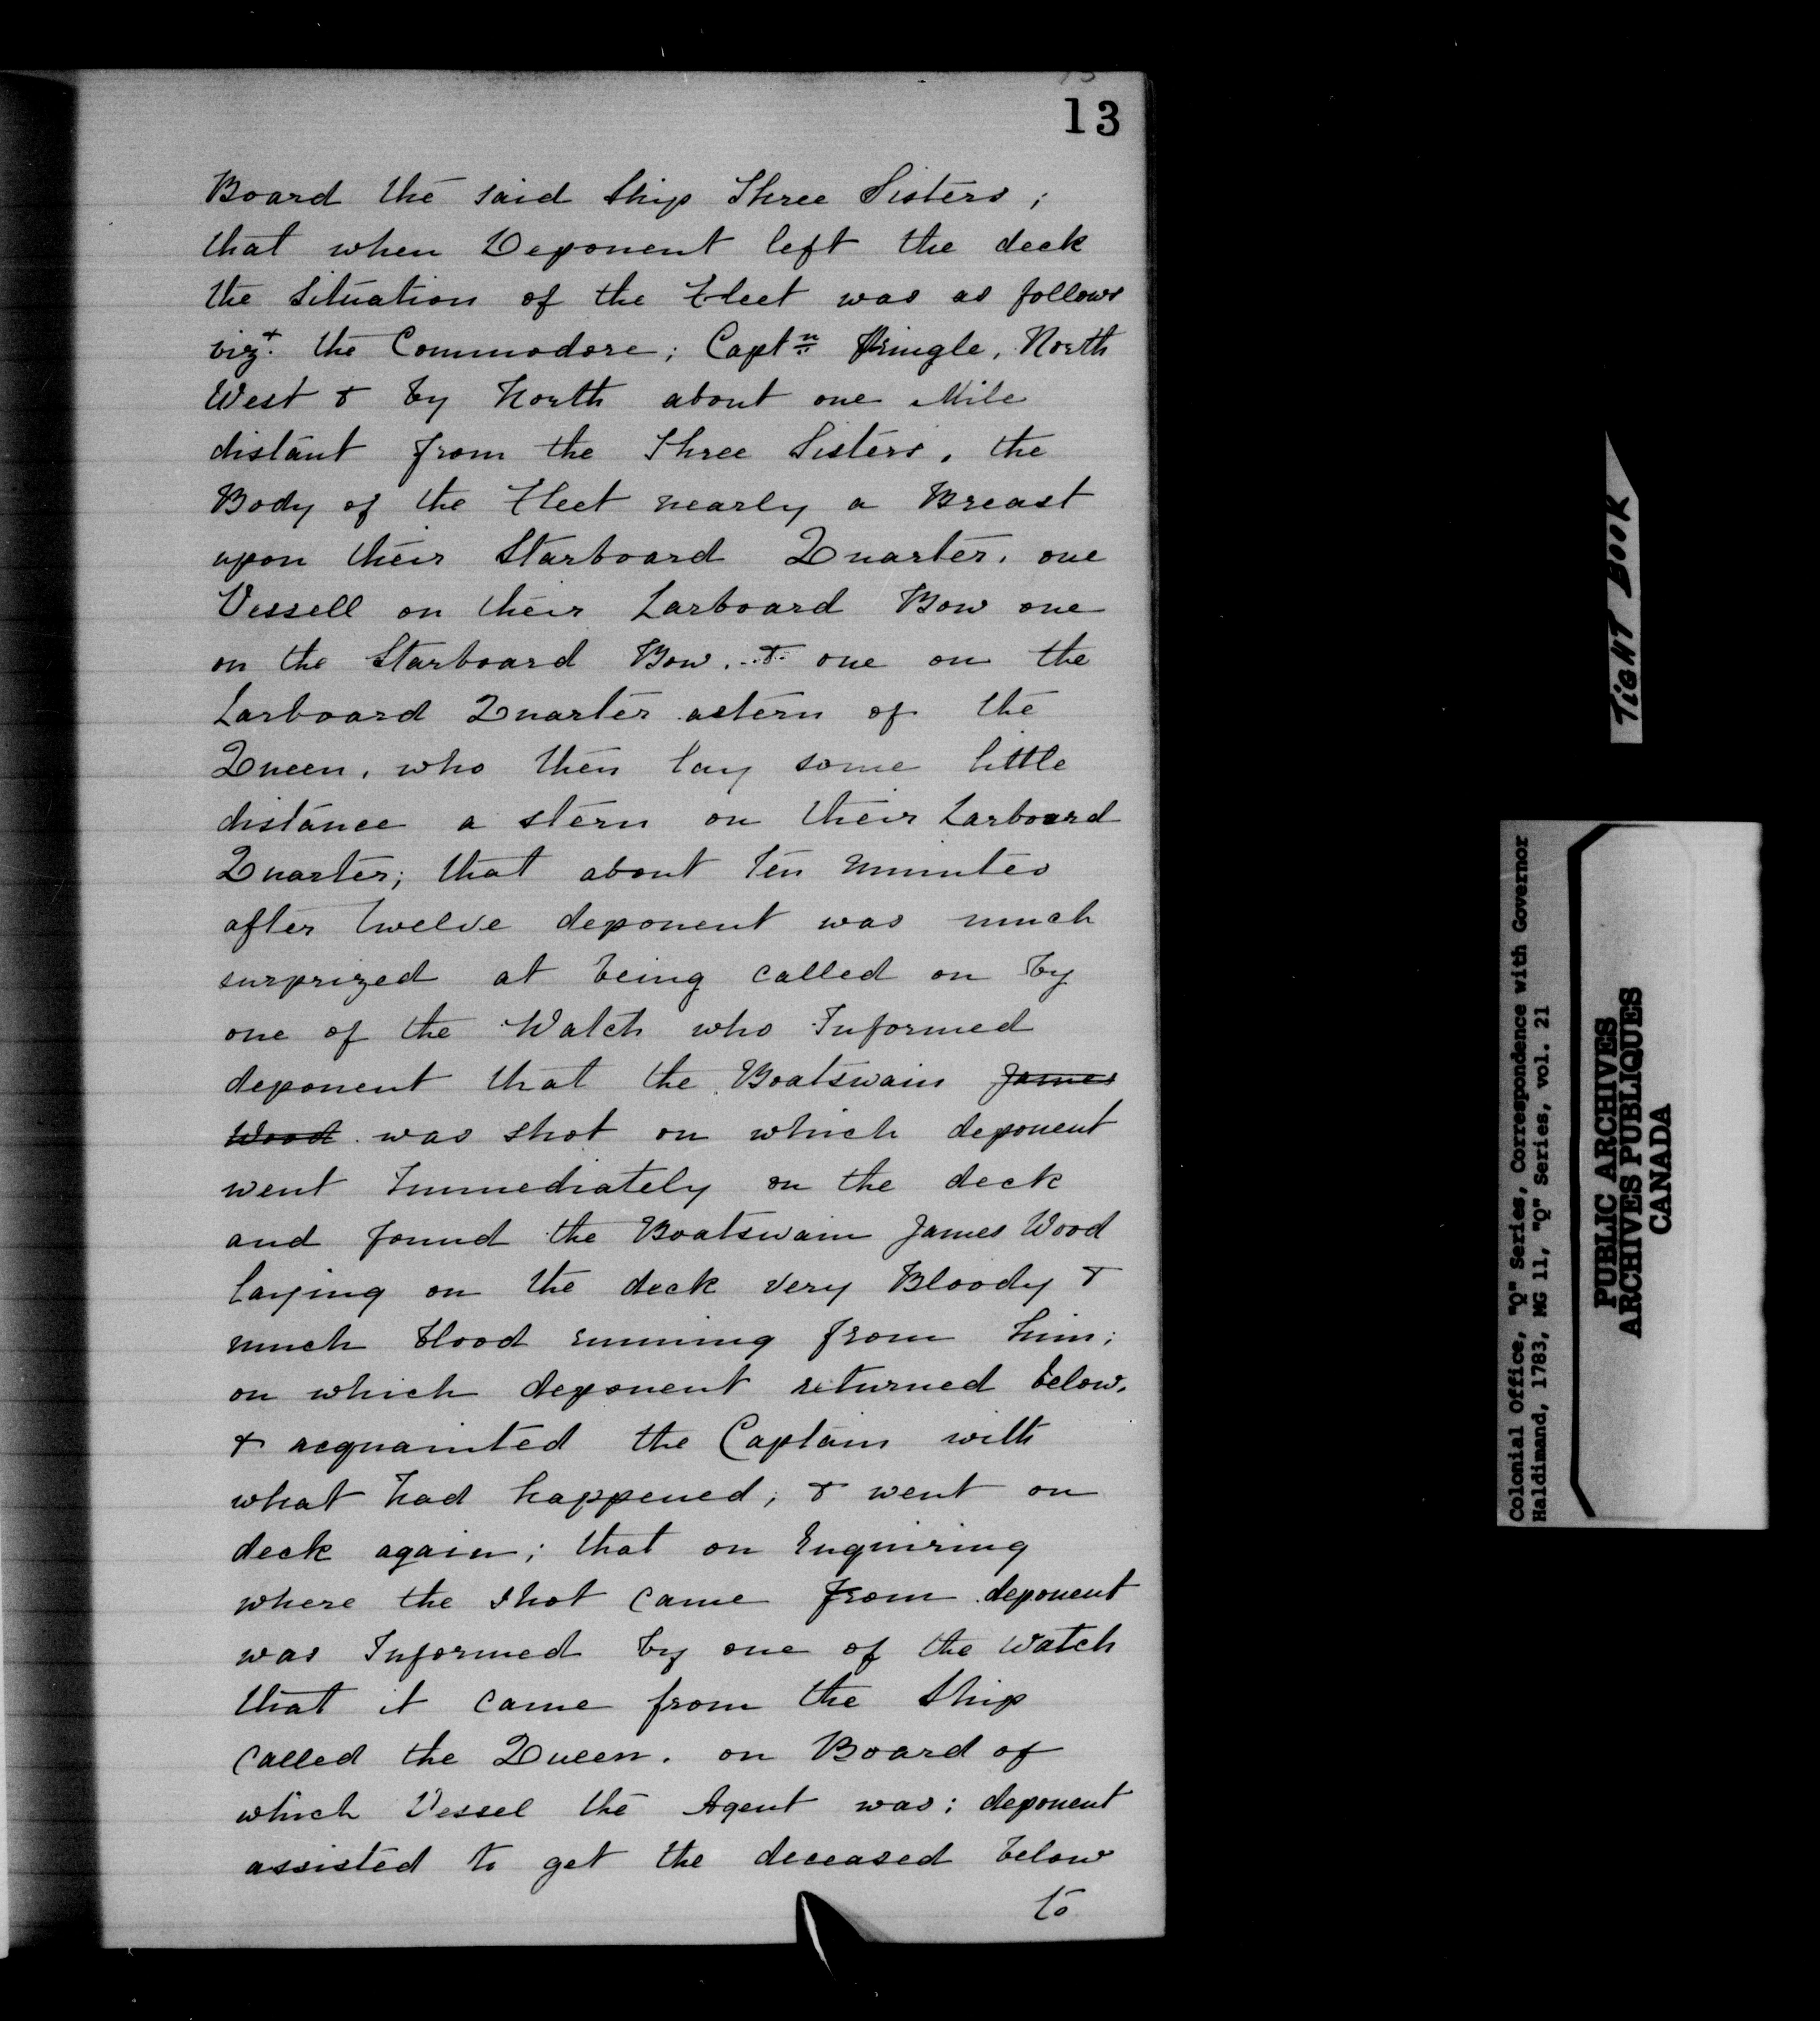 13
Board the said Ship Three Sisters;
that when Deponent left the deck
the Situation of the Fleet was as follows
vizt. the Commodore; Captn Pringle, North
West & by North about one Mile
distant from the Three Sisters, the
Body of the Fleet nearly a Breast
upon their Starboard Quarter, one
Vessell on their Larboard Bow one
on the Starboard Bow, & one on the
Larboard Quarter astern of the
Queen, who then lay some little
distance a stern on their Larboard
Quarter; that about ten Minutes
after twelve deponent was much
surprized at being called on by
one of the Watch who Informed
deponent that the Boatswain James
Wood was shot on which deponent
went Immediately on the deck
and found the Boatswain James Wood
laying on the deck very Bloody &
much blood running from him;
on which deponent returned below,
& acquainted the Captain with
what had happened; & went on
deck again; that on Enquiring
where the shot came from deponent
was Informed by one of the Watch
that it came from the Ship
called the Queen, on Board of
which Vessel the Agent was; deponent
assisted to get the deceased below
to
TIGHT BOOK
Colonial Office, "Q" Series, Correspondence with Governor
Haldimand, 1783, MG 11, "Q" Series, vol. 21
PUBLIC ARCHIVES
ARCHIVES PUBLIQUES
CANADA